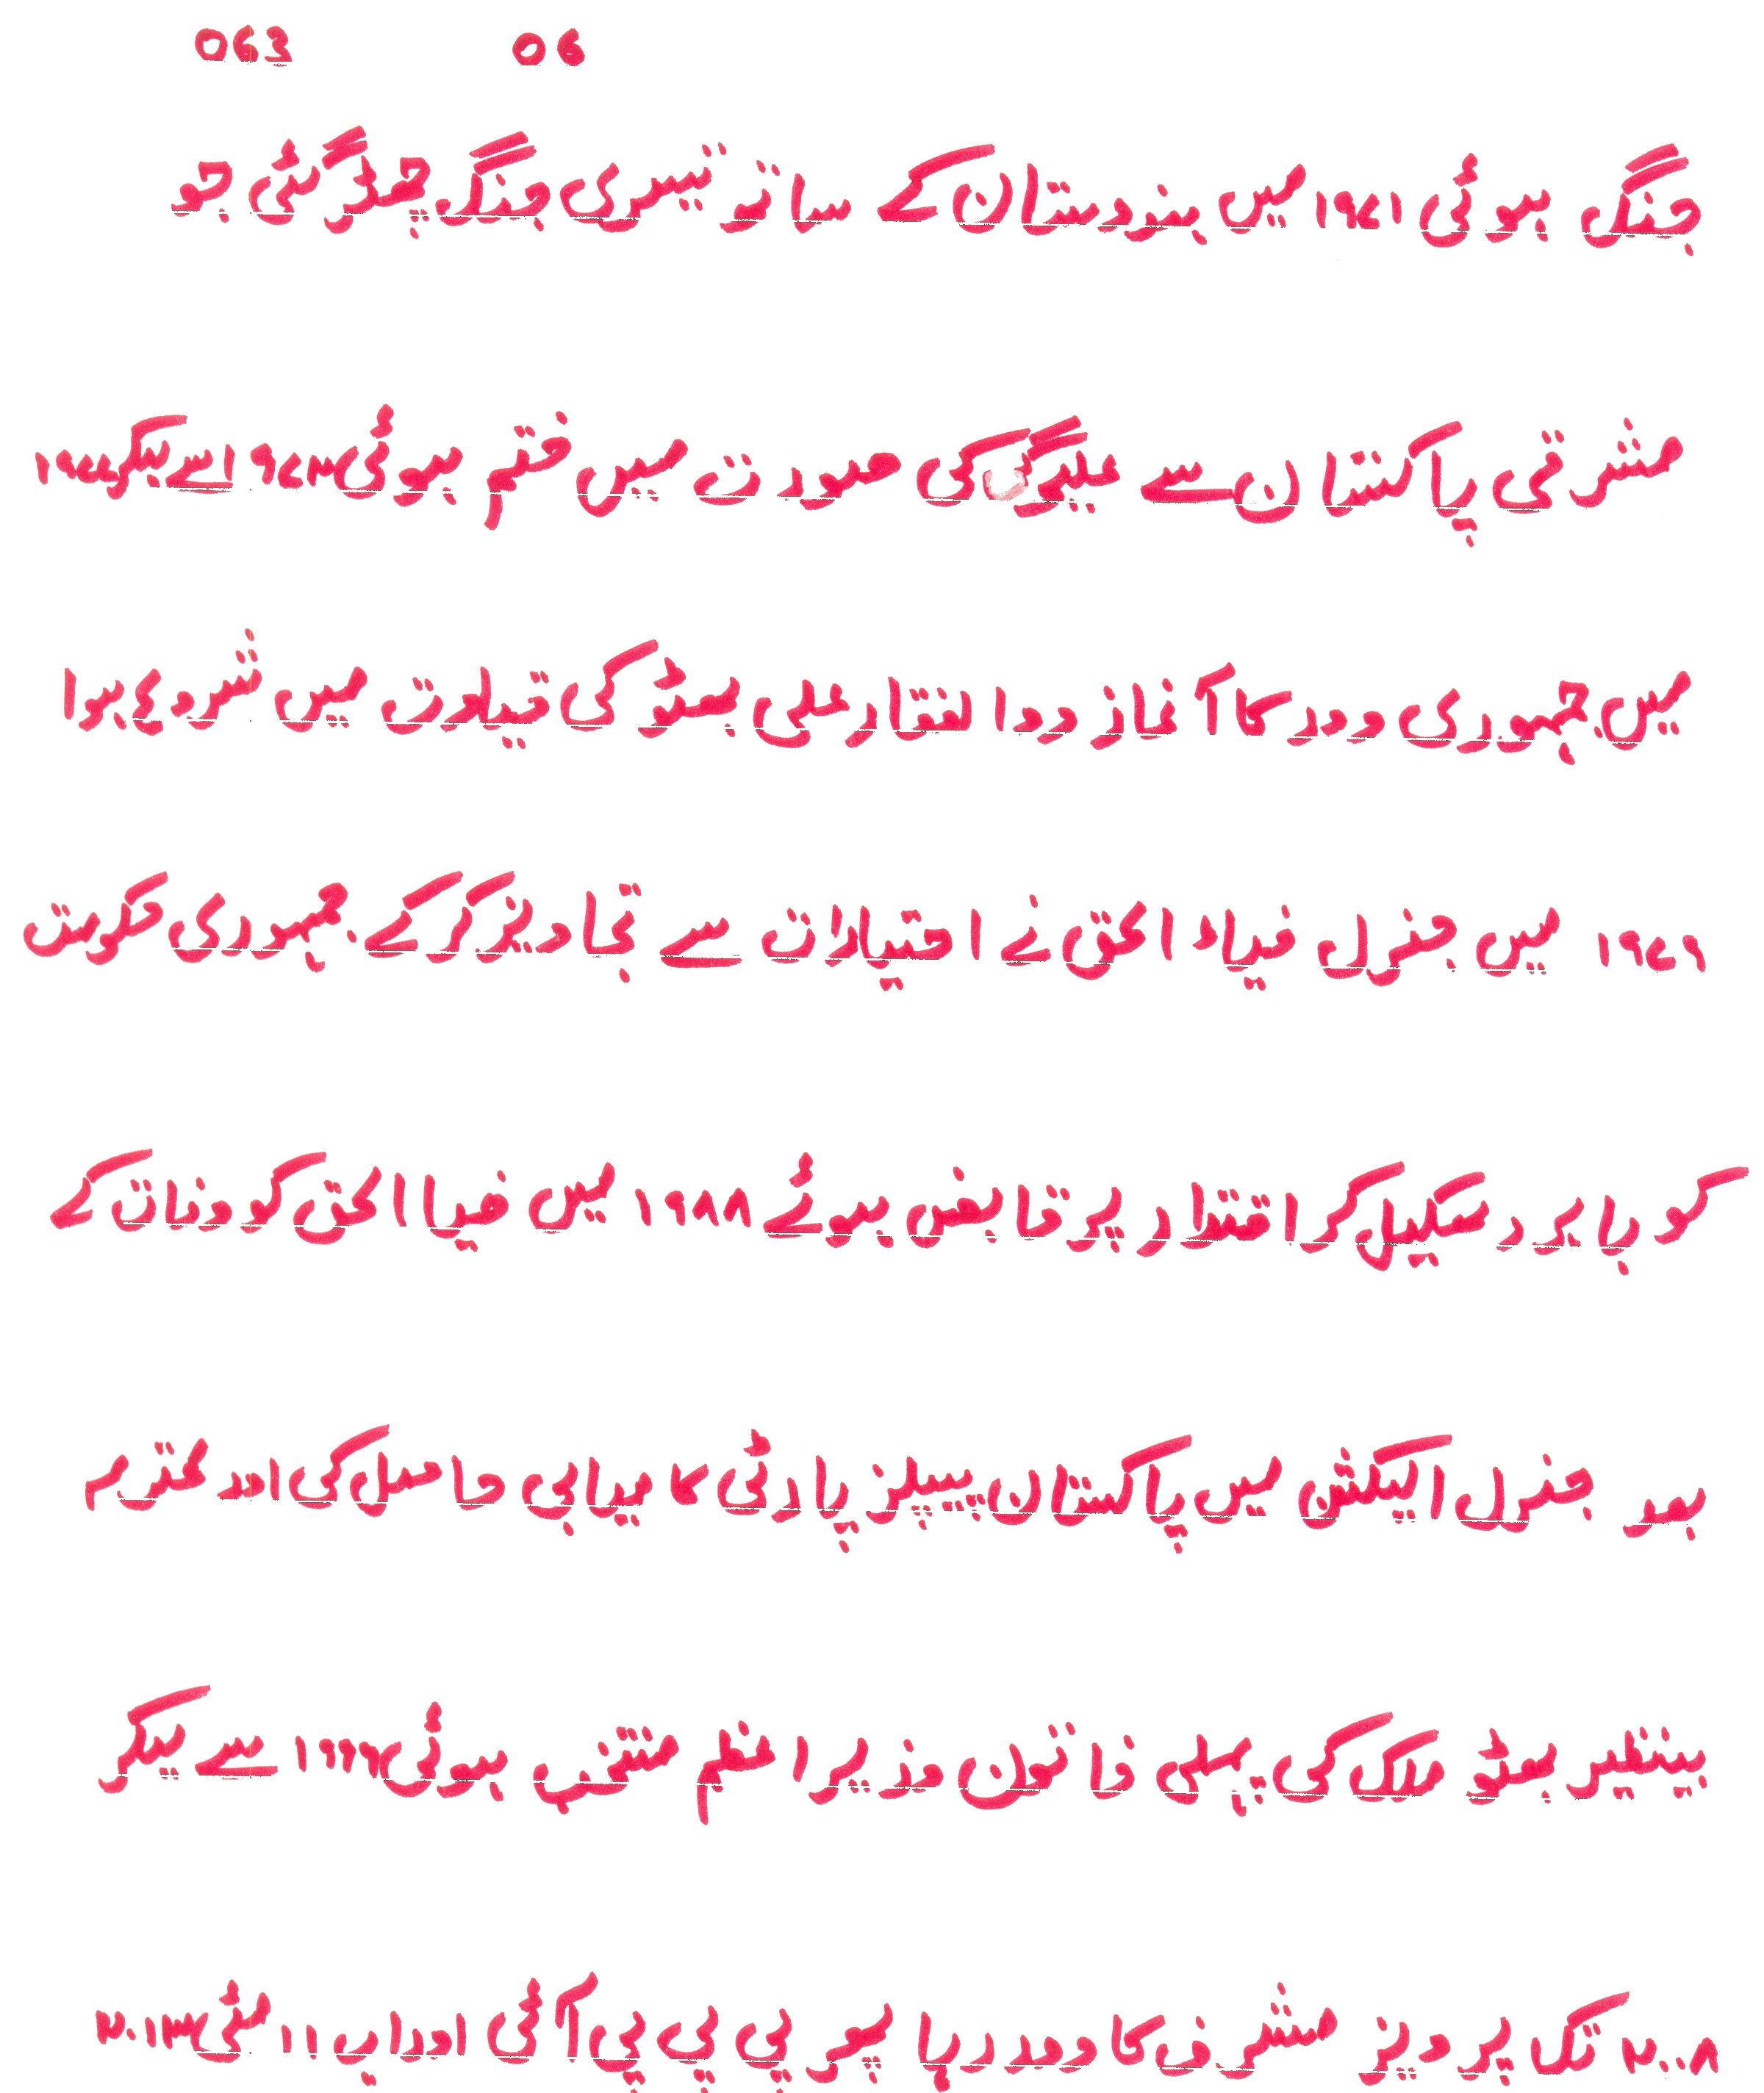 063 06
جنگ ہوئی ۱۹۷۱ میں ہندوستان کے ساتھ تیسری جنگ چھڑ گئی جو
مشرقی پاکستان سے علیدگی کی صورت میں ختم ہوئی ۱۹۷۳ سے لیکر ۱۹۷۷
میں جمہوری دور کا آغاز ذولفقار علی بھٹو کی قیادت میں شروع ہوا
۱۹۷۹ میں جنرل ضیاء الحق نے اختیارات سے تجاویز کر کے جمہوری حکومت
کو برابر دھکیل کر اقتدار پر قابض ہوئے ۱۹۸۸ میں ضیا الحق کو وفات کے
بعد جنرل الیکشن میں پاکستان پیپلز پارٹی کامیابی حاصل کی اور محترم
بینظیر بھٹو ملک کی پہلی خاتون وزیر اعظم منتخب ہوئی ۱۹۹۹ سے لیکر
۲۰۰۸ تک پرویز مشرف کا دور رہا پھر پی پی پی آئی اور اب ۱۱ مئی ۲۰۱۳